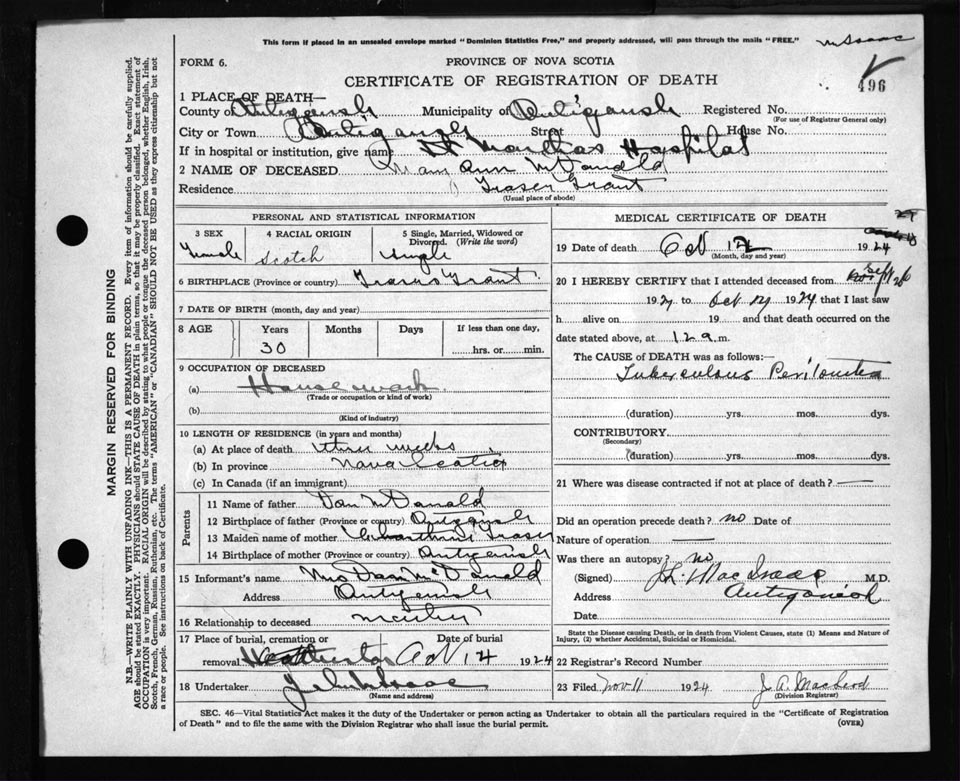 This form if placed in an unsealed envelope marked "Dominion Statistics Free," and properly addressed, will pass through the mails "FREE."
McIsaac
FORM 6.
PROVINCE OF NOVA SCOTIA
CERTIFICATE OF REGISTRATION OF DEATH
496
1 PLACE OF DEATH—
County of Antigonish Municipality of Antigonish Registered No.
(For use of Registrar General only)
City or Town Antigonish Street House No.
If in hospital or institution, give name St Marthas Hospital
2 NAME OF DECEASED Mary Ann McDonald
Residence Fraser Grant
(Usual place of abode)
PERSONAL AND STATISTICAL INFORMATION
3 SEX 4 RACIAL ORIGIN 5 Single, Married, Widowed or Divorced. (Write the word)
Female Scotch Single
6 BIRTHPLACE (Province or country) Frasers Grant
7 DATE OF BIRTH (month, day and year)
8 AGE Years Months Days If less than one day,
30 hrs. or min.
9 OCCUPATION OF DECEASED
(a) Housework
(Trade or occupation or kind of work)
(b)
(Kind of industry)
10 LENGTH OF RESIDENCE (in years and months)
(a) At place of death three weeks
(b) In province Nova Scotia
(c) In Canada (if an immigrant)
Parents
11 Name of father Dan McDonald
12 Birthplace of father (Province or country) Antigonish
13 Maiden name of mother Fraser
14 Birthplace of mother (Province or country) Antigonish
15 Informant's name Mrs Dan McDonald
Address Antigonish
16 Relationship to deceased
17 Place of burial, cremation or removal Date of burial
Heatherton Oct 14 1924
18 Undertaker
(Name and address)
MEDICAL CERTIFICATE OF DEATH
19 Date of death Oct 12 1924
(Month, day and year)
20 I HEREBY CERTIFY that I attended deceased from Sept 26
1924 to Oct 12 1924 that I last saw
h alive on 19 and that death occurred on
date stated above, at 12 a.m.
The CAUSE of DEATH was as follows:—
Tuberculous Peritonitis
(duration) yrs. mos. dys.
CONTRIBUTORY
(Secondary)
(duration) yrs. mos. dys.
21 Where was disease contracted if not at place of death?
Did an operation precede death? no Date of
Nature of operation
Was there an autopsy? no
(Signed) J. MacIsaac M.D.
Address Antigonish
Date
State the Disease causing Death, or in death from Violent Causes, state (1) Means and Nature of Injury, (2) whether Accidental, Suicidal or Homicidal.
22 Registrar's Record Number
23 Filed Nov 11 1924 J. A. MacLeod
(Division Registrar)
SEC. 46—Vital Statistics Act makes it the duty of the Undertaker or person acting as Undertaker to obtain all the particulars required in the "Certificate of Registration
of Death" and to file the same with the Division Registrar who shall issue the burial permit. (OVER)
MARGIN RESERVED FOR BINDING
N.B.—WRITE PLAINLY WITH UNFADING INK—THIS IS A PERMANENT RECORD. Every item of information should be carefully supplied.
AGE should be stated EXACTLY. PHYSICIANS should STATE CAUSE OF DEATH in plain terms, so that it may be properly classified. Exact statement of
OCCUPATION is very important. RACIAL ORIGIN will be described by stating to what people or tongue the deceased person belonged, whether English, Irish,
Scotch, French, German, Russian, Ruthenian, etc. The terms "AMERICAN" or "CANADIAN" SHOULD NOT BE USED as they express citizenship but not
a race or people. See instructions on back of Certificate.